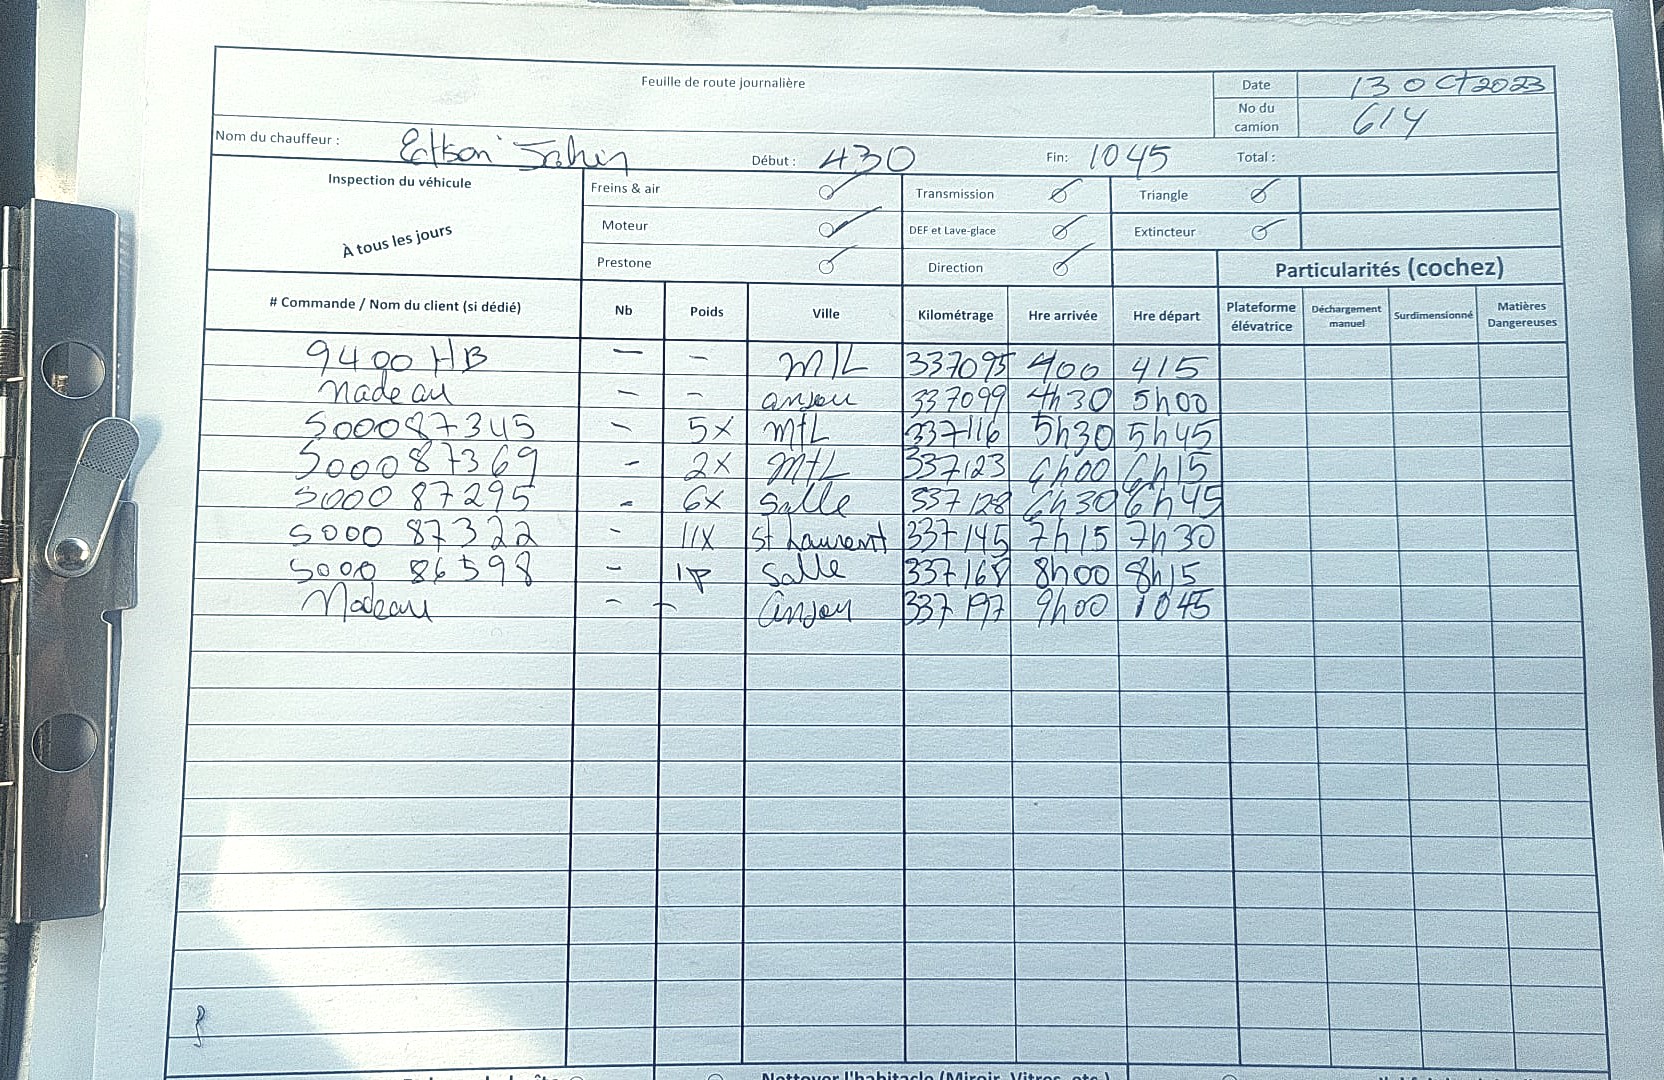 Feuille de route journalière
Date 13 Oct 2023
No du camion 614
Nom du chauffeur : Début : 430 Fin: 1045 Total :
Inspection du véhicule
À tous les jours
Freins & air Transmission Triangle
Moteur DEF et Lave-glace Extincteur
Prestone Direction
Particularités (cochez)
# Commande / Nom du client (si dédié) Nb Poids Ville Kilométrage Hre arrivée Hre départ Plateforme élévatrice Déchargement manuel Surdimensionné Matières Dangereuses
9400 HB — — MTL 337095 400 415
Nadeau — — anjou 337099 4h30 5h00
500087345 — 5x MtL 337116 5h30 5h45
500087369 — 2x MtL 337123 6h00 6h15
5000 87295 — 6x Salle 337128 6h30 6h45
5000 87322 — 11x St Laurent 337145 7h15 7h30
5000 86598 — 1p Salle 337168 8h00 8h15
Nadeau — — anjou 337197 9h00 1045
Nettoyer l'habitacle (Miroir, Vitres, etc.)